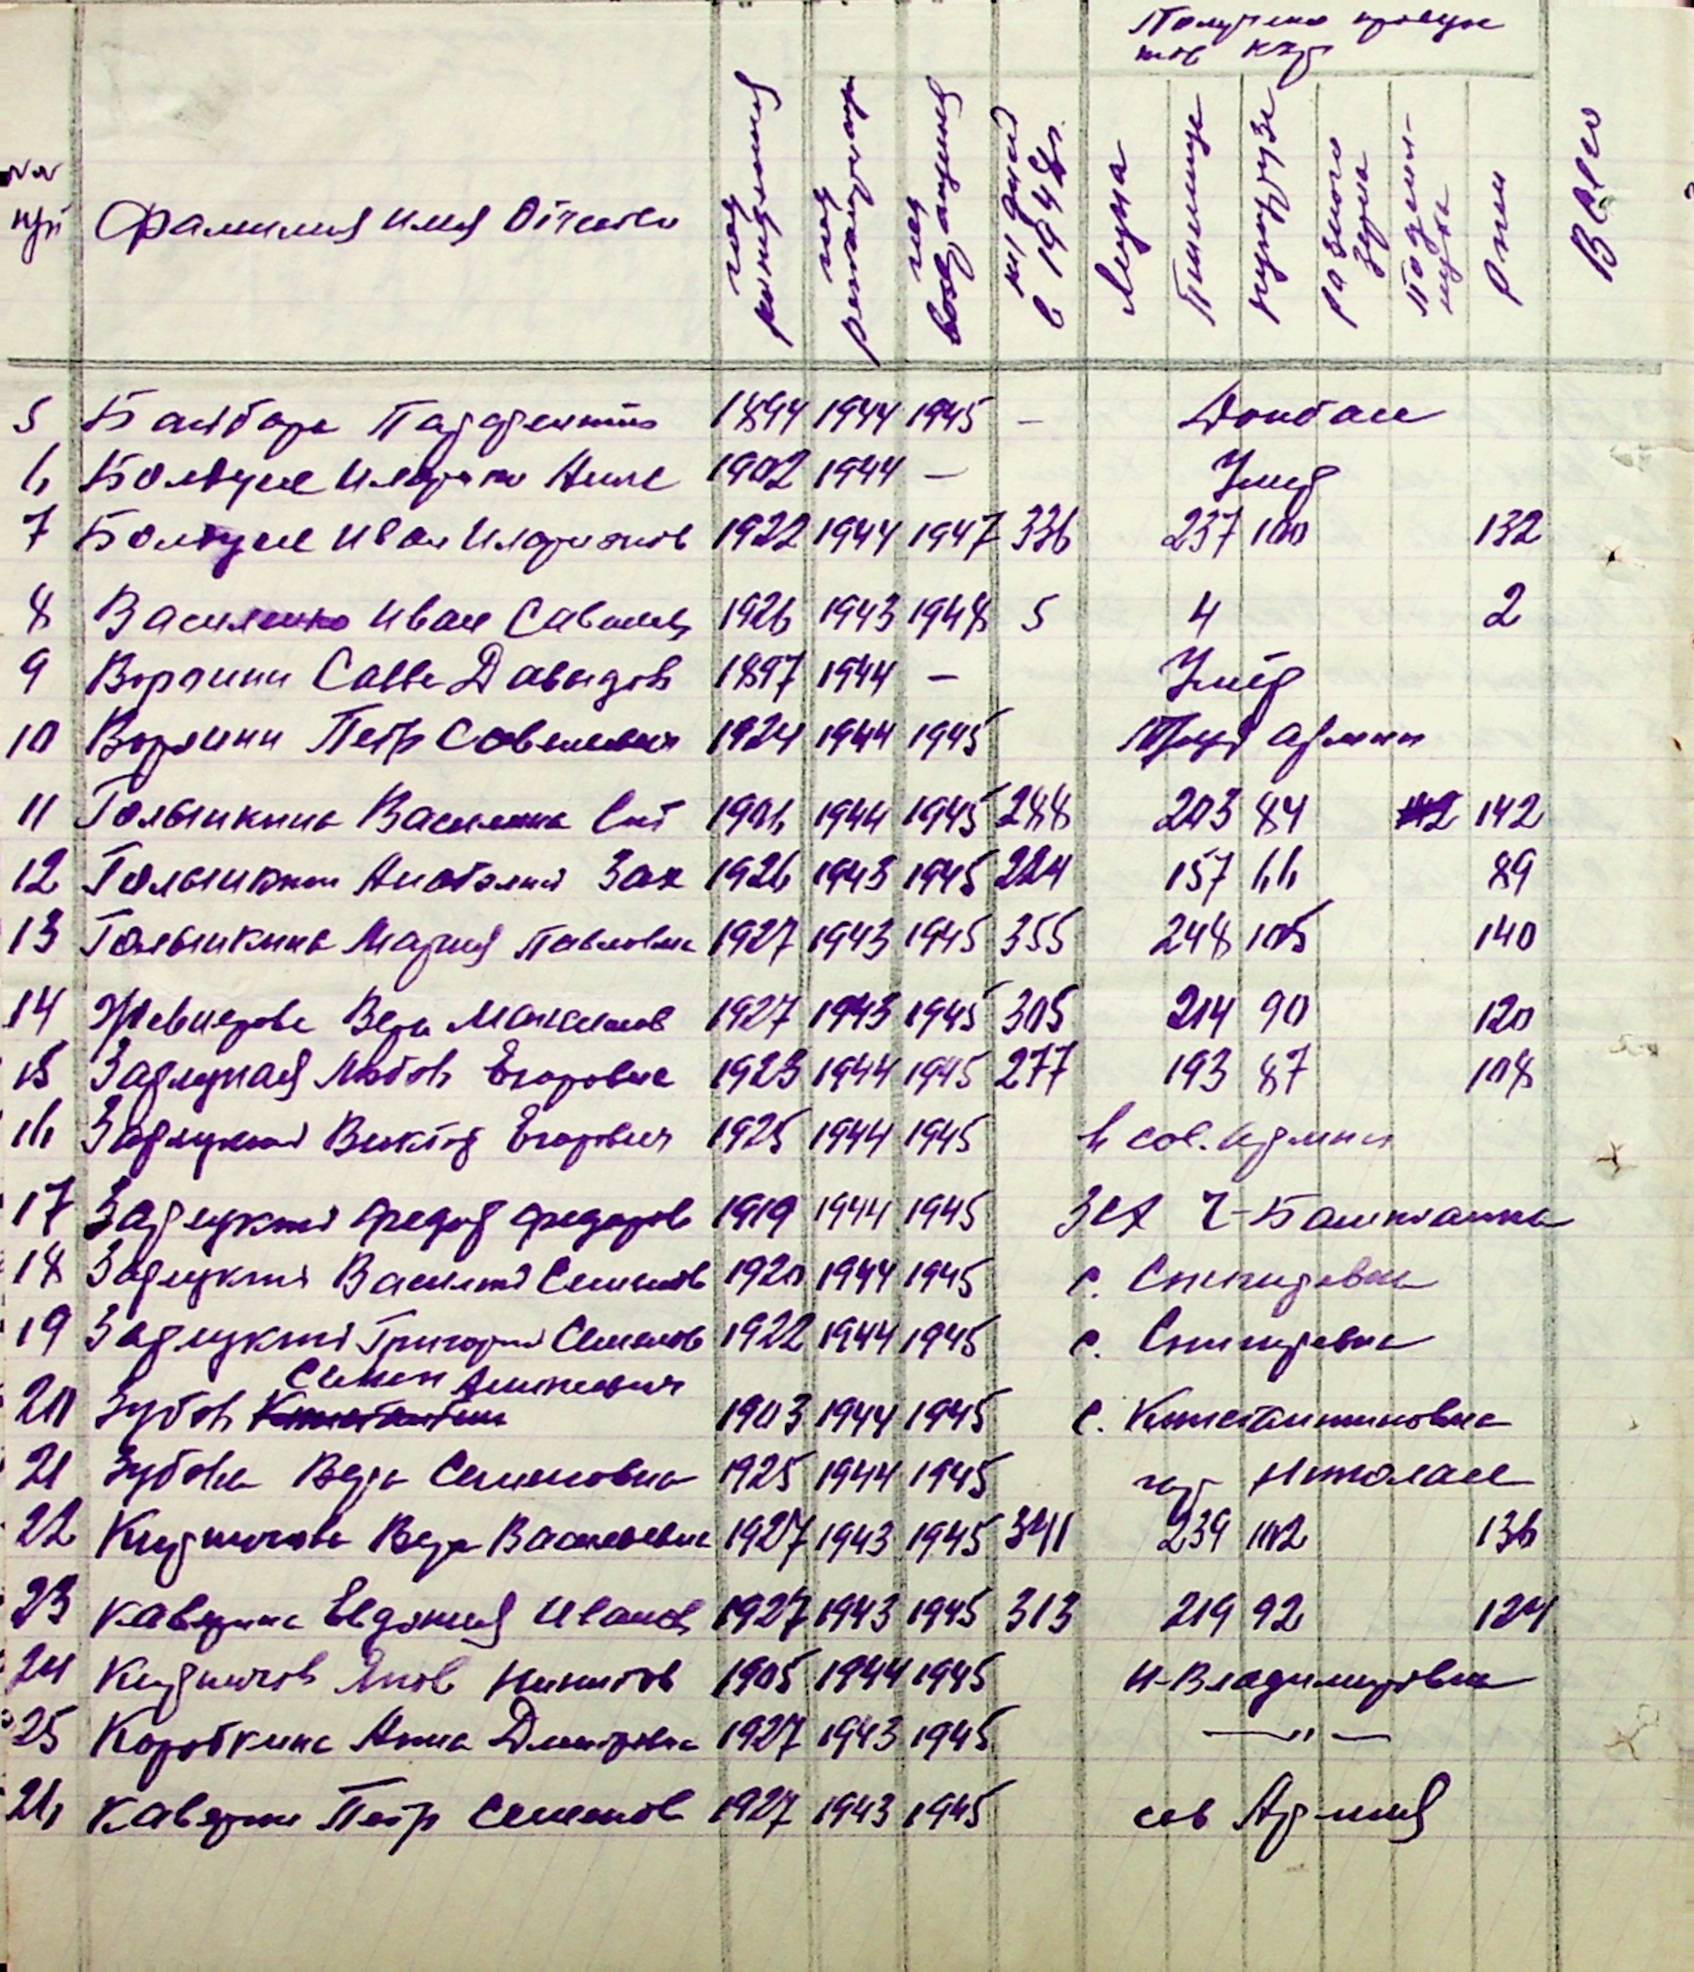 Получено продук
тов кгр
NN
п/п
Фамилия имя Отчество
год рождения
год репатриации
год возвращения
тр. дней в 1944 г.
Мука
Пшеница
кукуруза
разного зерна
Подсолнуха
Всего
5 Байбара 1894 1944 1945 – Донбасс
6 1902 1944 – Умер
7 Иван Иларионов 1922 1944 1947 336 237 100 132
8 Василенко Иван Савельев 1926 1943 1948 5 4 2
9 Савва Давыдов 1897 1944 – Умер
10 Петр Савельевич 1924 1944 1945 Труд армии
11 Голышкина Василиса 1906 1944 1945 288 203 84 142
12 Голышкин Анатолий Зах 1926 1943 1945 224 157 66 89
13 Голышкина Мария Павловна 1927 1943 1945 355 248 105 140
14 Вера Максимов 1927 1943 1945 305 214 90 120
15 Зарлуцкая Любовь Егоровна 1923 1944 1945 277 193 87 108
16 Зарлуцкий Виктор Егорович 1925 1944 1945 в сов. армии
17 Зарлуцкий Федор Федоров 1919 1944 1945 Баштанка
18 Зарлуцкий Василий Семенов 1920 1944 1945 с. Снигиревка
19 Зарлуцкий Григорий Семенов 1922 1944 1945 с. Снигиревка
Семен
20 Зубов Константин 1903 1944 1945 с. Константиновка
21 Зубова Вера Семеновна 1925 1944 1945 гор Николаев
22 Вера Васильевна 1927 1943 1945 341 239 102 136
23 Каверина Евдокия Иванов 1927 1943 1945 313 219 92 124
24 Яков Никитов 1905 1944 1945 Н-Владимировка
25 Коробкина Анна Дмитровна 1927 1943 1945 —"—
26 Каверин Петр Семенов 1927 1943 1945 сов Армия